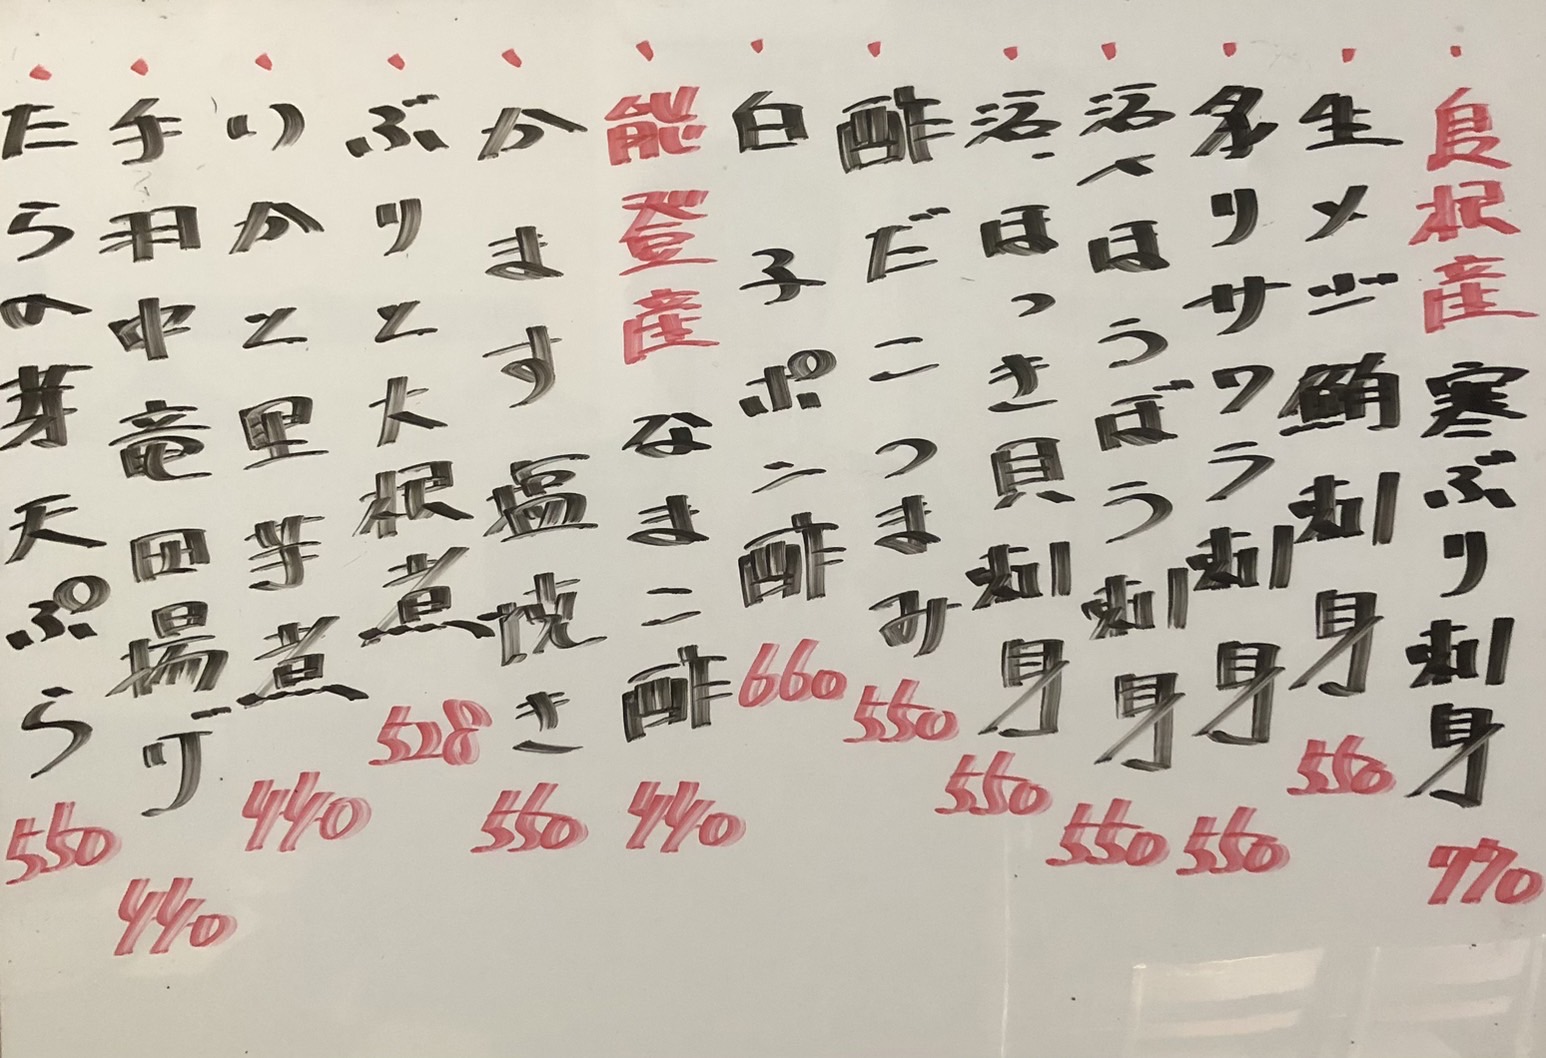 島根産寒ぶり刺身 770
生メジ鮪刺身 550
炙りサワラ刺身 550
活〆ほうぼう刺身 550
活ほっき貝刺身 550
酢だこつまみ 550
白子ポン酢 660
能登産なまこ酢 440
かます塩焼き 550
ぶりと大根煮 528
いかと里芋煮 440
手羽中竜田揚げ 440
たらの芽天ぷら 550